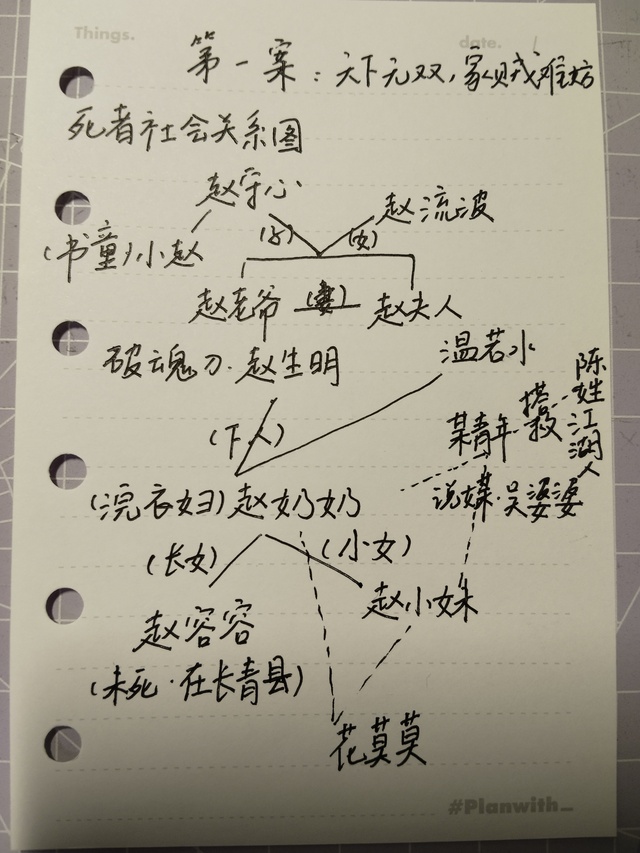 Things.
date. 1
第一案：天下无双，家贼难防
死者社会关系图
赵守心
赵流波
(书童)小赵
(子)
(女)
赵老爷 (妻) 赵夫人
破魂刀·赵生明
温若水
陈姓江湖人
搭救
某青年
(下人)
说媒·吴婆婆
(浣衣妇)赵奶奶
(长女)
(小女)
赵容容
赵小妹
(未死·在长青县)
花莫莫
#Planwith_